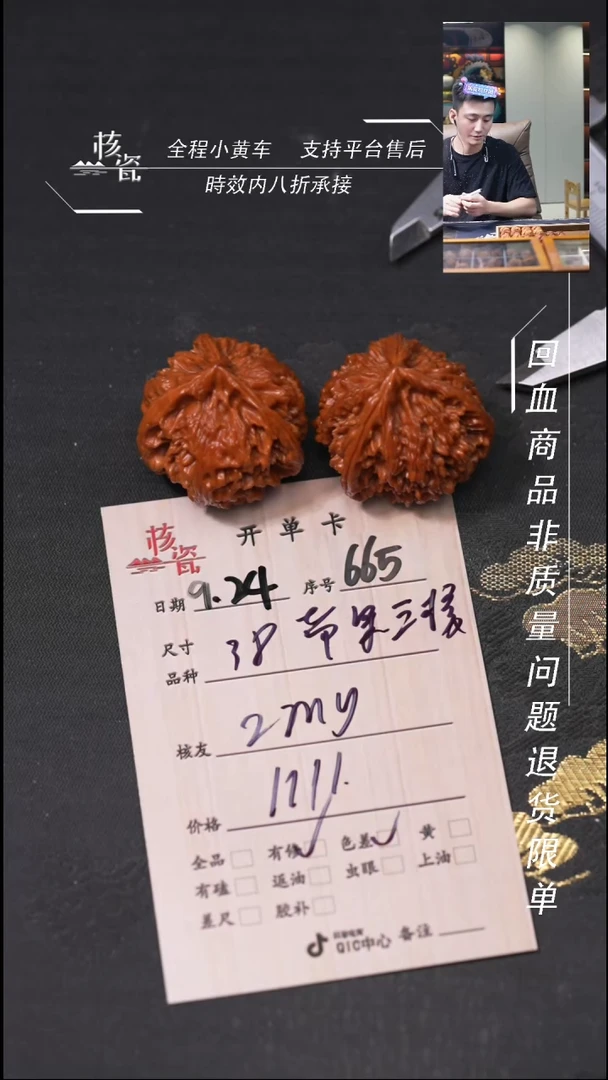 核瓷
全程小黄车 支持平台售后
時效内八折承接
回血商品非质量问题退货限单
核瓷
开单卡
日期 9.24 序号 665
尺寸
品种 38 苹果三棱
核友 2my
价格
全品 有修 色差 黄
有磕 返油 虫眼 上油
差尺 胶补
抖音电商
QIC中心 备注